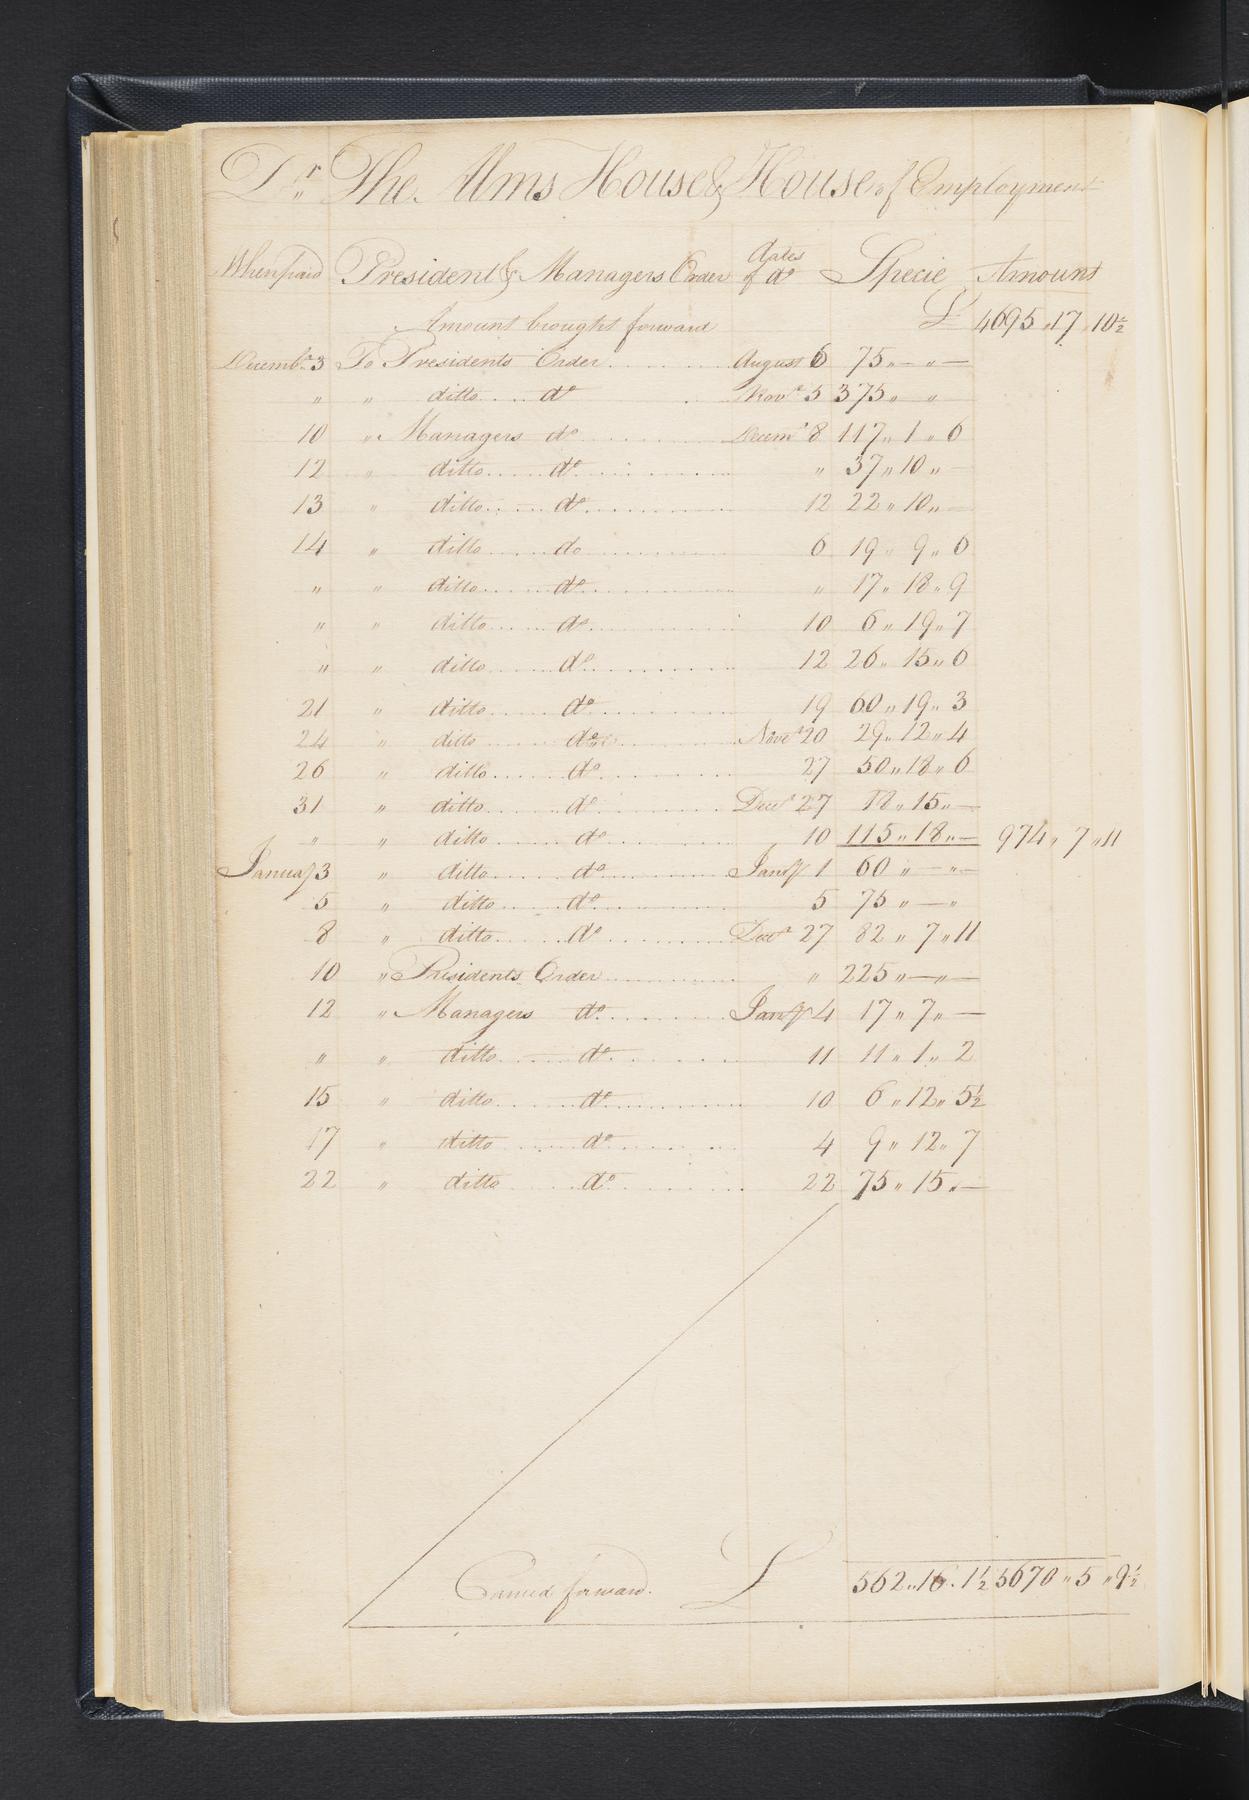 Dr The Alms House & House of Employment
When paid President & Managers Order dates of do Specie Amount
Amount brought forward £ 4695 " 17 " 10½
Decembr 3 To Presidents Order ........ August 6 75 " — " —
" " ditto .... do . Novr 5 375 " "
10 " Managers do ........ Decemr 8 117 " 1 " 6
12 " ditto ...... do ........ " 37 " 10 " —
13 " ditto ...... do ........ 12 22 " 10 " —
14 " ditto ...... do ........ 6 19 " 9 " 6
" " ditto ...... do ........ " 17 " 18 " 9
" " ditto ...... do ........ 10 6 " 19 " 7
" " ditto ...... do ........ 12 26 " 15 " 6
21 " ditto ...... do ........ 19 60 " 19 " 3
24 " ditto ...... do ........ Novr 20 29 " 12 " 4
26 " ditto ...... do ........ 27 50 " 18 " 6
31 " ditto ...... do ........ Decr 27 18 " 15 " —
" " ditto ...... do ........ 10 115 " 18 " — 974 " 7 " 11
Januay 3 " ditto ...... do ........ Jany 1 60 " — " —
5 " ditto ...... do ........ 5 75 " — "
8 " ditto ...... do ........ Decr 27 82 " 7 " 11
10 " Presidents Order ........ " 225 " — " —
12 " Managers do ........ Jany 4 17 " 7 " —
" " ditto ...... do ........ 11 11 " 1 " 2
15 " ditto ...... do ........ 10 6 " 12 " 5½
17 " ditto ...... do ........ 4 9 " 12 " 7
22 " ditto ...... do ........ 22 75 " 15 " —
Carried forward. £ 562 " 16 . 1½ 5670 " 5 " 9½